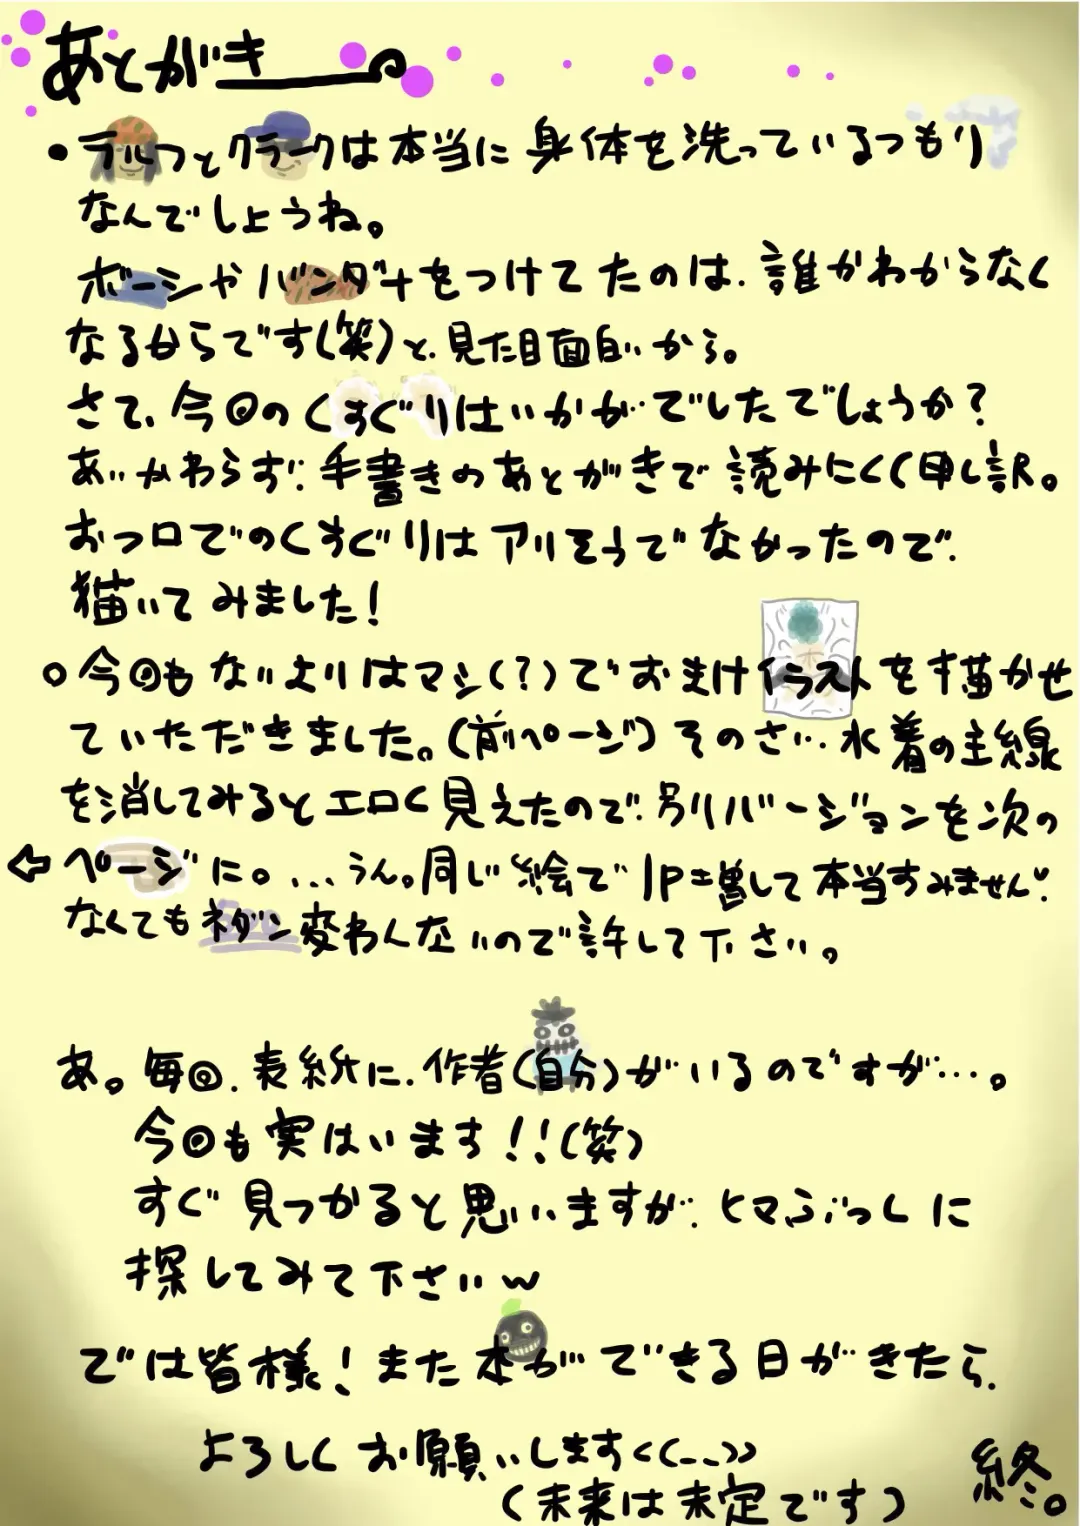 あとがき
・ラルフとクラークは本当に身体を洗っているつもり
なんでしょうね。
ボーシやバンダナをつけてたのは、誰かわからなく
なるからです(笑)と、見た目面白いから。
さて、今回のくすぐりはいかがでしたでしょうか?
あいかわらず、手書きのあとがきで読みにくく申し訳。
おっ口でのくすぐりはアリそうでなかったので、
猫いてみました!
○今回もないよりはマシ(?)でおまけイラストを描かせ
ていただきました。(前ページ)そのさい…水着の主線
を消してみるとエロく見えたので、別バージョンを次の
⇦ページに。…うん。同じ絵で1P増して本当すみません。
なくてもネダン変わんないので許して下さい。
あ。毎回、表紙に、作者(自分)がいるのですが…。
今回も実はいます!!(笑)
すぐ見つかると思いますが、ヒマぶっしに
探してみて下さいw
では皆様!また本ができる日がきたら、
よろしくお願いします<(_ _)>
(未来は未定です)
終。